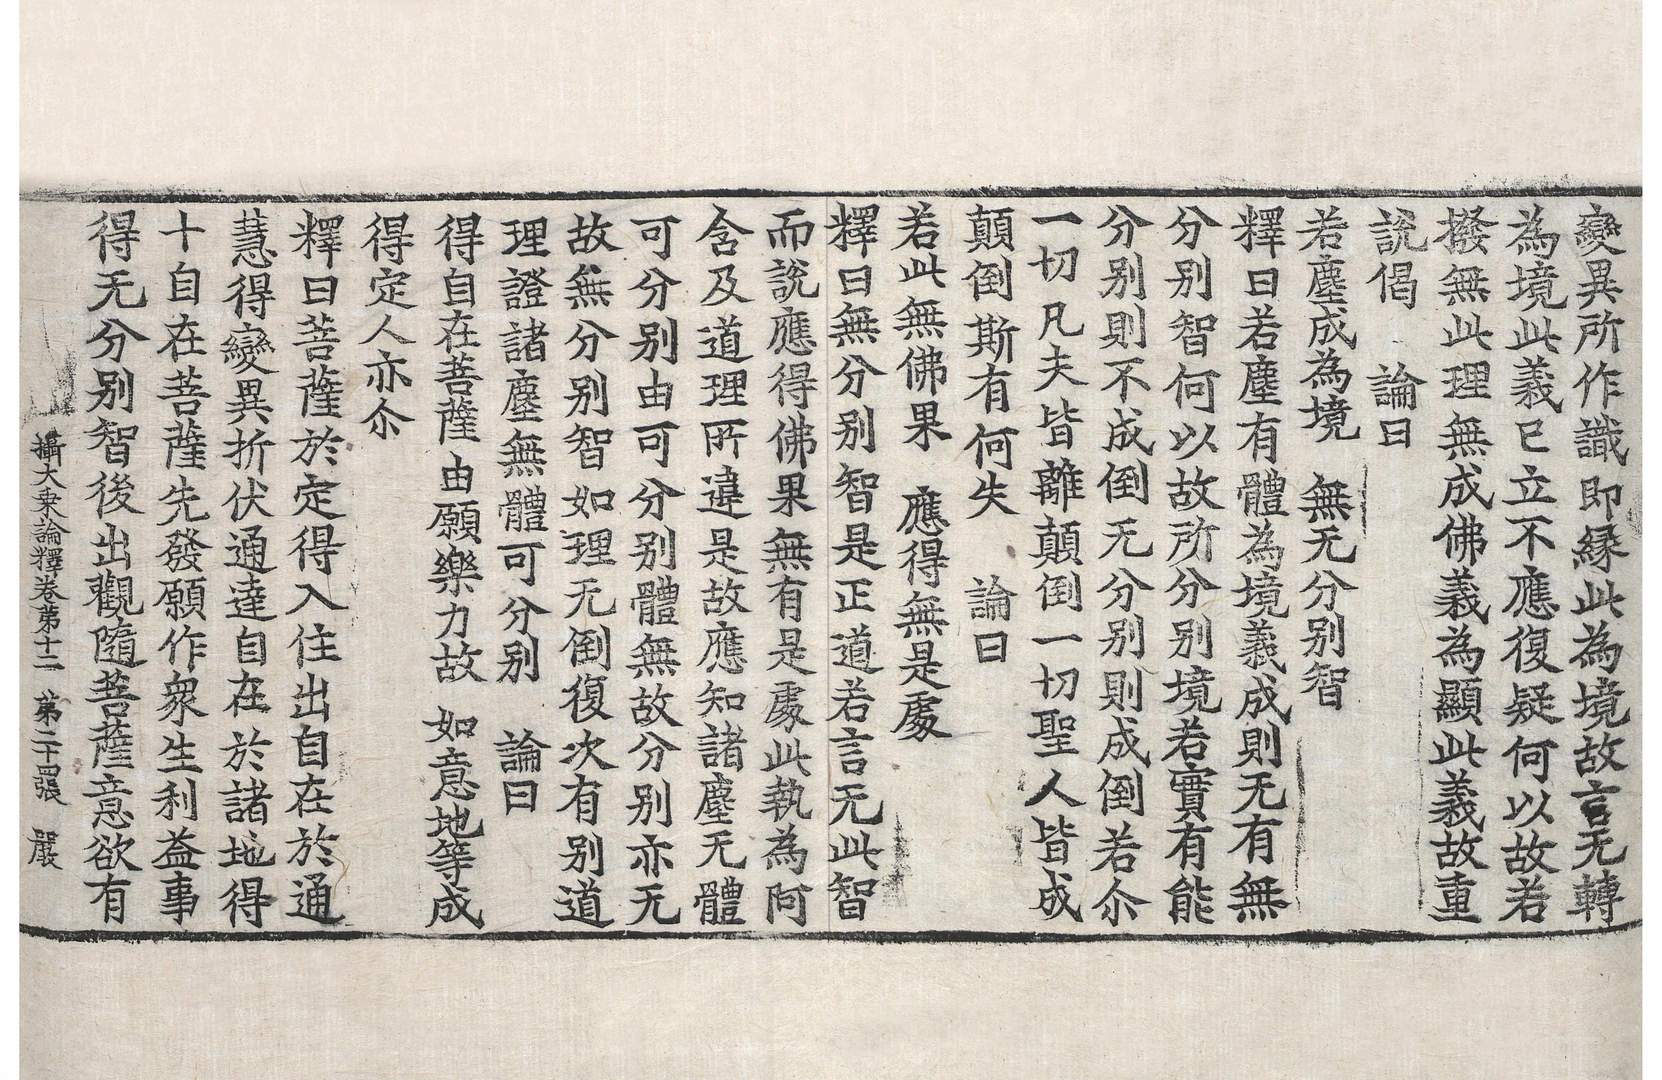 變異所作識即縁此為境故言无轉
為境此義已立不應復疑何以故若
撥無此理無成佛義為顯此義故重
說偈　論曰
若塵成為境　無无分别智
釋曰若塵有體為境義成則无有無
分别智何以故所分别境若實有能
分别則不成倒无分别則成倒若尒
一切凡夫皆離顛倒一切聖人皆成
顛倒斯有何失　論曰
若此無佛果　應得無是處
釋曰無分别智是正道若言无此智
而說應得佛果無有是處此執為阿
含及道理所違是故應知諸塵无體
可分别由可分别體無故分别亦无
故無分别智如理无倒復次有别道
理證諸塵無體可分别　論曰
得自在菩薩　由願樂力故　如意地等成
得定人亦尒
釋曰菩薩於定得入住出自在於通
慧得變異折伏通達自在於諸地得
十自在菩薩先發願作衆生利益事
得无分别智後出觀隨菩薩意欲有
攝大乗論釋卷第十二　第二十四張　嚴